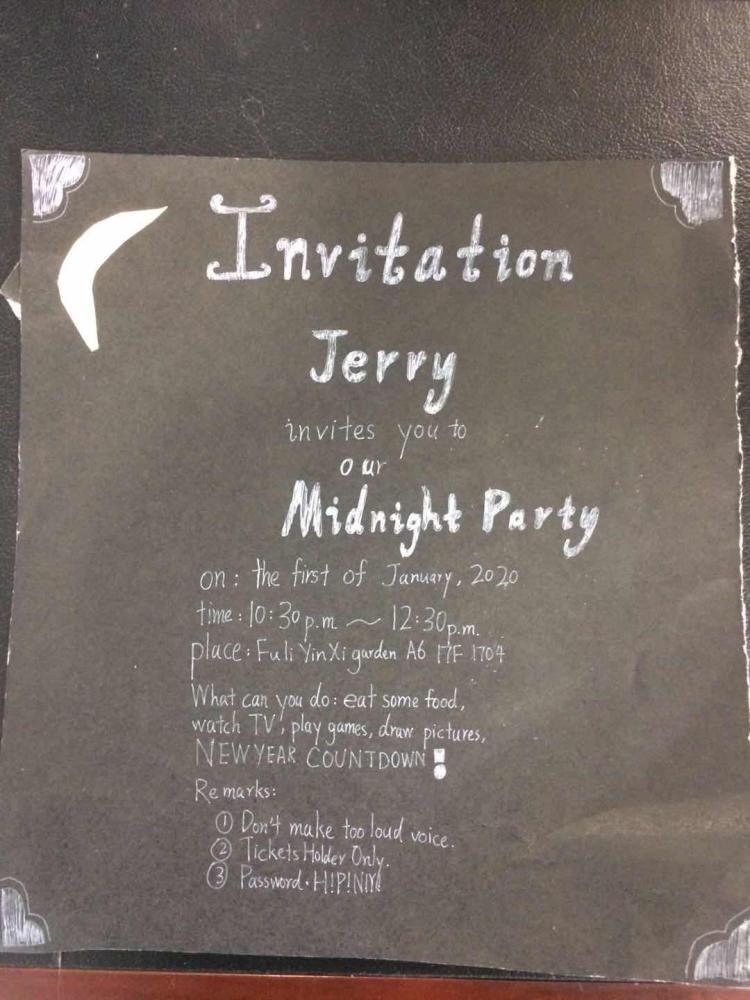 Invitation
Jerry
invites you to
our
Midnight Party
on: the first of January, 2020
time: 10:30p.m ~ 12:30p.m.
place: Fu li YinXi garden A6 17F 1704
What can you do: eat some food,
watch TV, play games, draw pictures,
NEW YEAR COUNTDOWN!
Remarks:
① Don't make too loud voice.
② Tickets Holder Only.
③ Password: